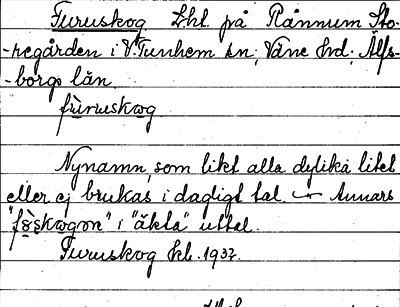 Furuskog Lht på Rånnum Sto-
-regården i V. Tunhem sn, Väne hrd, Älfs-
-borgs län
fùruskωg
Nynamn, som likt alla dylika litet
eller ej brukas i dagligt tal. — Annars
"fö̀skωgɷn" i "äkta" uttal.
Furuskog hl. 1937.